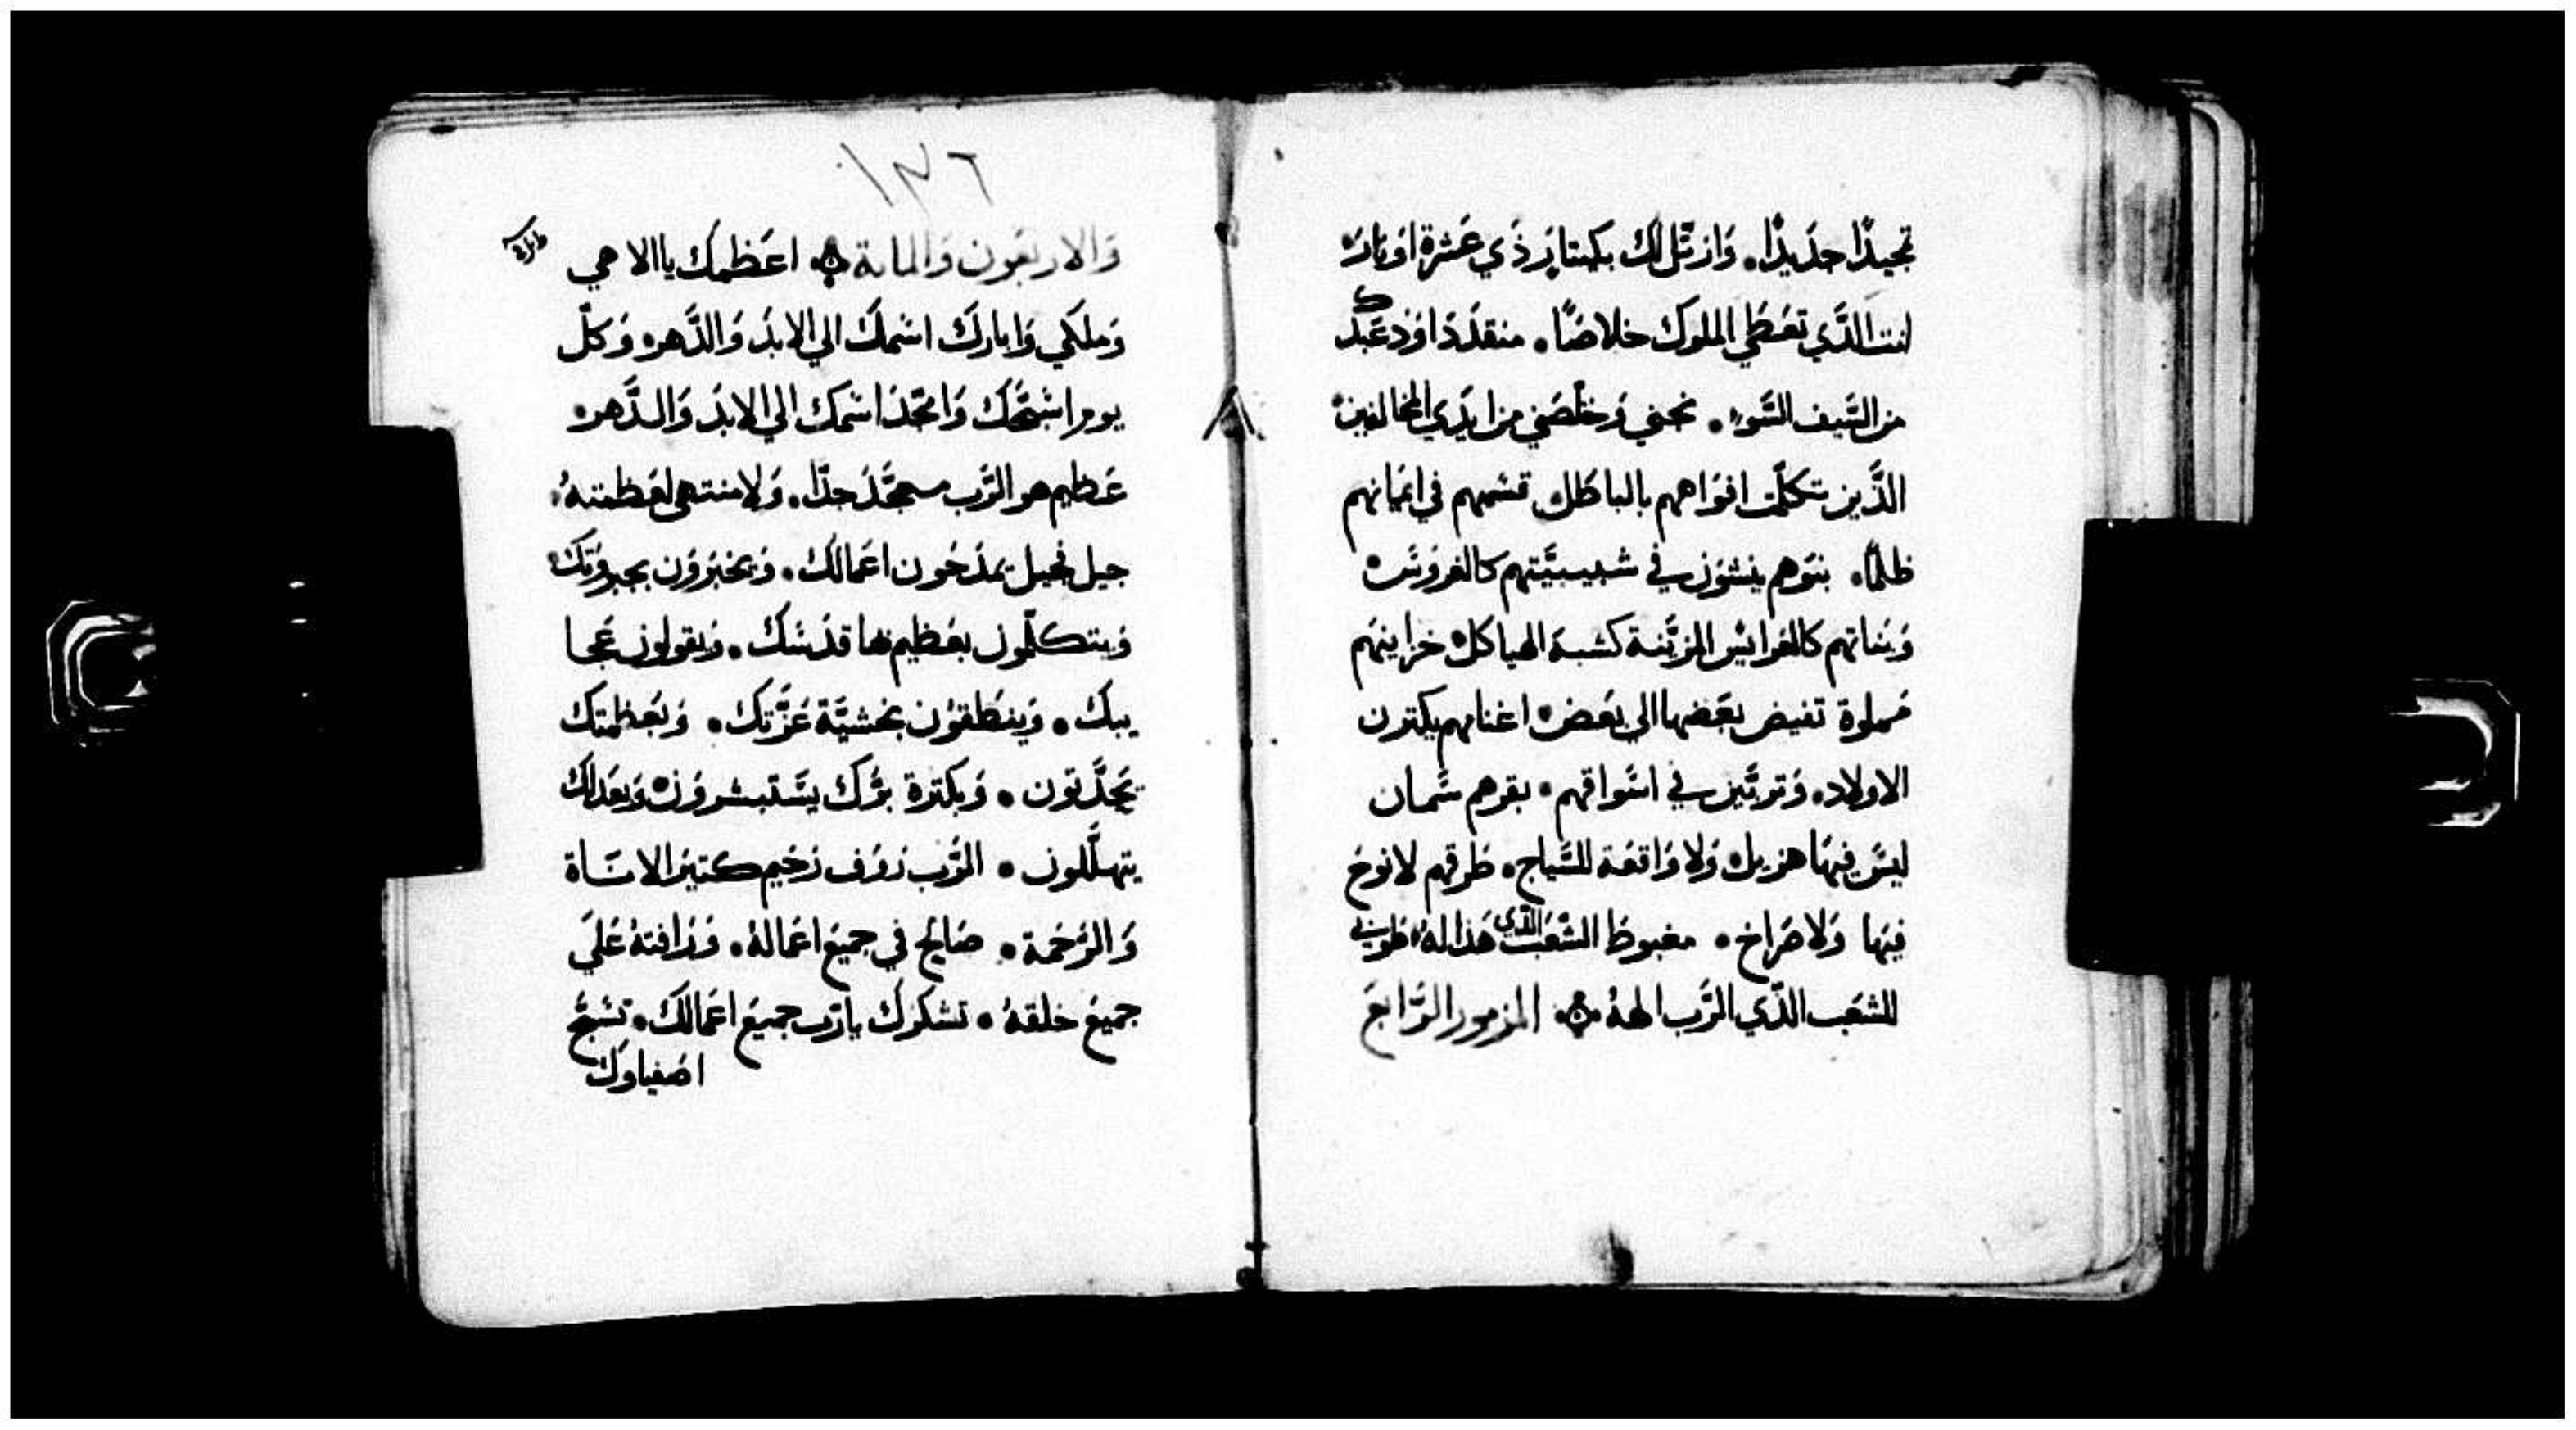 تمجيدًا جديدًا. وَازتّل لك بكيتار ذَي عَشرة اوتار
انت الذَّي تعَطي الملوك خلاصًا. منقذ دَاوَد عَبدك
من السَّيف السَّو. نجني وَخلّصَني من ايدَي المخالفين
الذَّين تتكلّمت افوَاههم بالباطل قسمهم في ايمَانهم
ظلمًا. بنوَهم ينشوَن في شبيبيَّتهم كالغروَسَ
وَبَناتهم كالعَرايس المزيَّنة كشبه الهياكل خزاينهَم
مَملوة تفيض بعَضها الي بعَض اغنامهم يكترن
الاولاد. وَتربَّين في اسَواقهم. بقرهم سَمان
ليسَ فيهَا هزيل وَلا وَاقعَة للسَّياج. طَرقهم لا نوحَ
فيهَا وَلا صَراخ. مغبوطَ الشَعَب الذَّي هَذا لهُ طَوبي
للشعَب الذَّي الرَّب الههُ ۞ المزمور الرَّابعَ
١٣٦
وَالاربعَون وَالماية ۞ اعَظمك ياالاهي
وَملكي وَابارك اسَمك الي الابدَ وَالدَّهر وَكلّ
يوم اسَبّحَك وَامجّد اسَمك الي الابدَ وَالدَّهر
عَظيم هو الرَّب ممجَّدَ جدّا. وَلا منتهي لعَظمتهُ
جيل فجيل يمدَحَون اعَمالك. وَيخبَروَن بجبروَتك
وَيتكلّمون بعَظيم بها قدَسَك. وَيقولون عَجا
يبك. وَينطَقوَن بخشيَّة عَزَّتك. وَبعَظمتك
يحَدَّتون. وَبكترة برَّك يسَتبشروَن وَبعَدلك
يتهلَّلون. الرَّب رَوَف رَحَيم كتيرَ الاناة
وَالرَحَمة. صَالح في جميعَ اعَمالهُ. وَرَافتهُ عَليَ
جميعَ خلقهُ. تشكرك يارَب جميعَ اعَمالك. تسَبّحَ
اصَفياوك